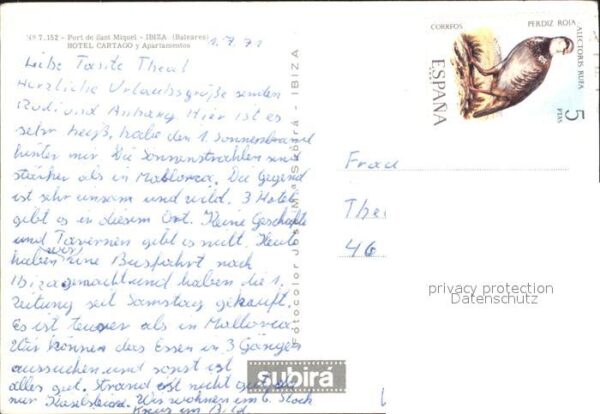 Nº 7.152 - Port de San Miquel - IBIZA (Baleares)
HOTEL CARTAGO y Apartamentos
1.7.71
Liebe Tante Thea!
Herzliche Urlaubsgrüße senden
Rudi und Anhang. Hier ist es
sehr heiß, habe den 1. Sonnenbrand
hinter mir. Die Sonnenstrahlen sind
stärker als in Mallorca. Die Gegend
ist sehr einsam und wild. 3 Hotels
gibt es in diesem Ort. Kleine Geschäfte
und Tavernen gibt es nicht. Heute
haben wir eine Busfahrt nach
Ibiza gemacht und haben die 1.
Zeitung seit Samstag gekauft.
Es ist teurer als in Mallorca.
Wir können das Essen in 3 Gängen
aussuchen und sonst ist
alles gut. Strand ist nicht gut
nur Kieselsteine. Wir wohnen im 6. Stock
Kreuz im Bild.
Fotocolor José Mª Subirá - IBIZA
subirá
CORREOS
PERDIZ ROJA
ALECTORIS RUFA
ESPAÑA
5
PTAS
Frau
The
46
privacy protection
Datenschutz